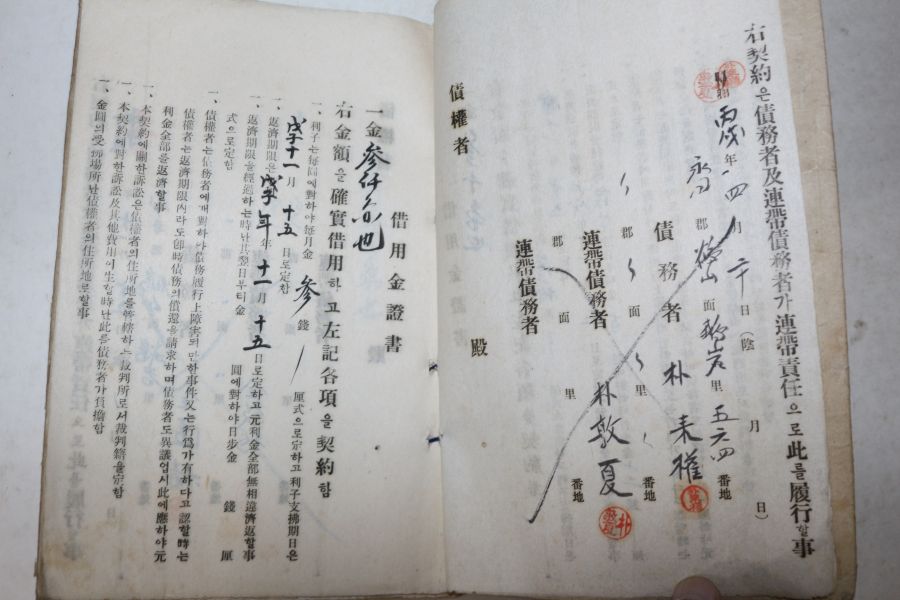 右契約은債務者及連帶債務者가連帶責任으로此를履行할事
丙戌年 四月 二十日(陰 月 日)
郡 面 里 五六四番地
債務者 朴 権
郡 面 里 番地
連帶債務者 朴敦夏
郡 面 里 番地
連帶債務者
債權者 殿
借用金證書
一金參仟 也
右金額을確實借用하고左記各項을契約함
一、利子는每圓에對하야每月金 參 錢 厘式으로定하고利子支拂期日은
戌十一月 十五 日로定함
一、返濟期限은 戌年 年 十一月 十五 日로定하고元利金全部無相違濟返할事
一、返濟期限을經過하는時난其翌日부터金 圓에對하야日步金 錢 厘
式으로定함
一、債權者는依務者에게對하야依務履行上障害되만한事件又는行爲가有하다고認할時는
債權者는返濟期限內라도卽時債務의償還을請求하며債務者도異議업시此에應하야元
利金全部을返濟할事
一、本契約에關한訴訟은依權者의住所地를管轄하는裁判所로서裁判籍을定함
一、本契約에對한訴訟及其他費用이生할時난此를債務者가負擔함
一、金圓의受拂場所난債權者의住所地로할事